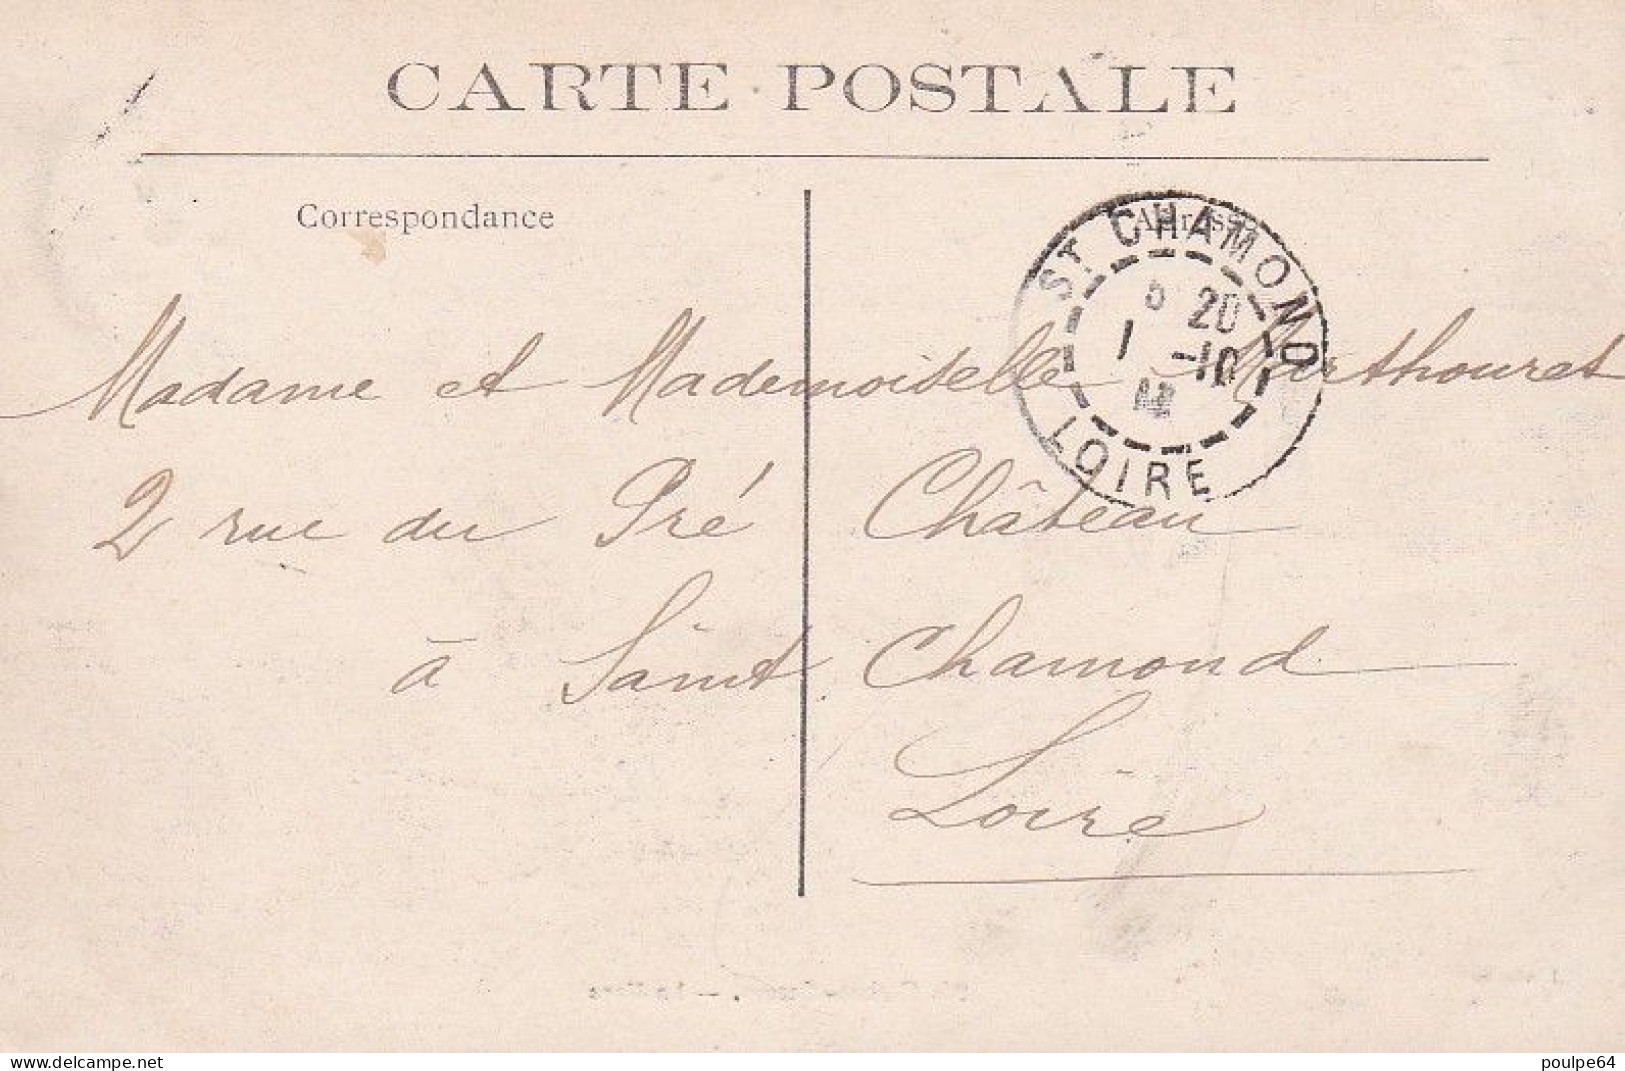 CARTE POSTALE
Correspondance
ST CHAMOND
20
1 -10
LOIRE
Madame et Mademoiselle Marthouret
2 rue du Pré Château
à Saint Chamond
Loire
www.delcampe.net
poulpe64